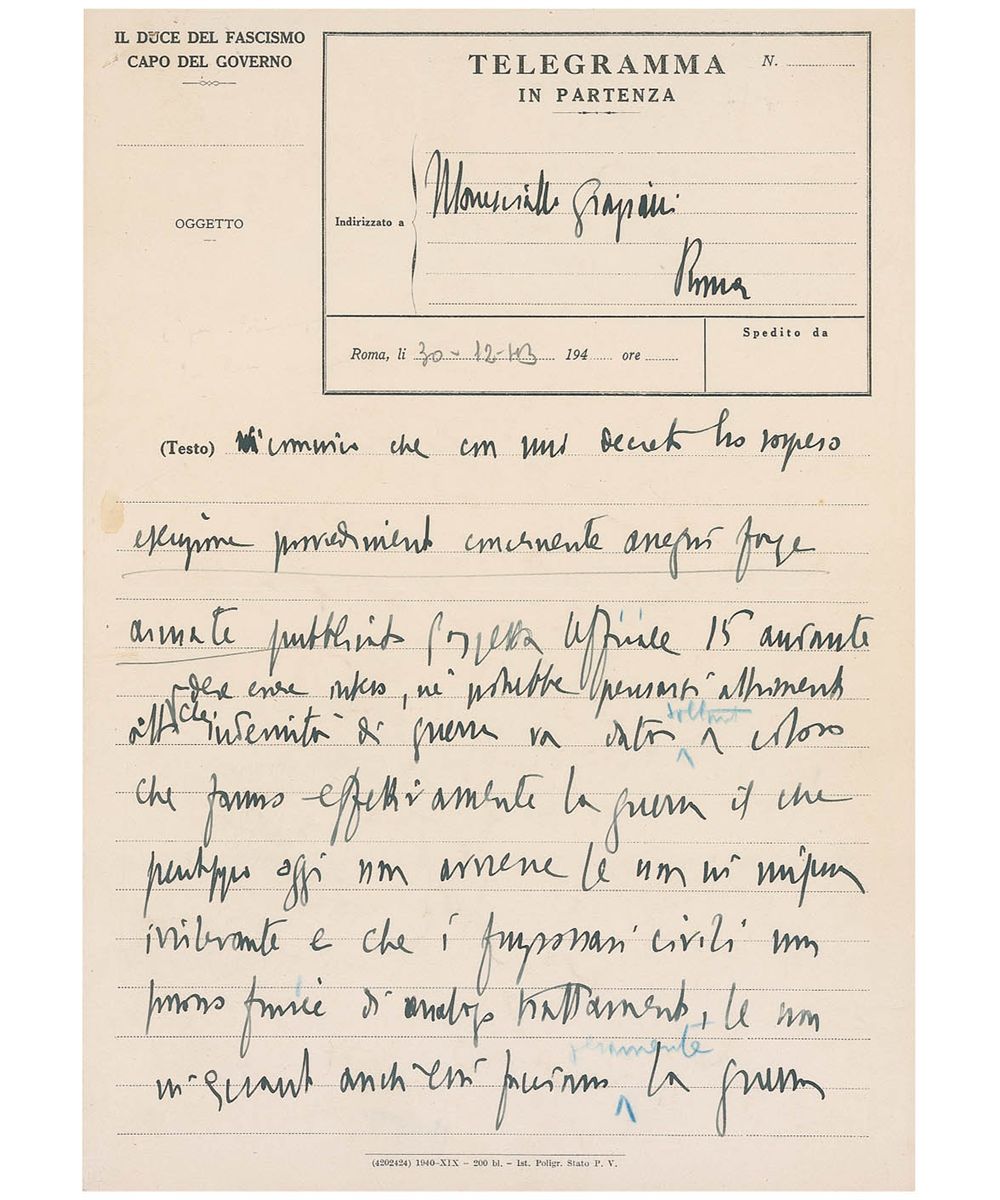 IL DUCE DEL FASCISMO
CAPO DEL GOVERNO
OGGETTO
TELEGRAMMA N.
IN PARTENZA
Indirizzato a
Maresciallo Graziani
Roma
Roma, li 30-12-43 194 ore
Spedito da
(Testo) Vi comunico che con mio decreto ho sospeso
esecuzione provvedimento concernente assegni forze
armate pubblicato Gazzetta Ufficiale 15 andante
deve essere inteso, né potrebbe pensarsi altrimenti
che indennità di guerra va data soltanto coloro
che fanno effettivamente la guerra il che
purtroppo oggi non avviene se non in misura
irrilevante e che i funzionari civili non
possono fruire di analogo trattamento, se non
in quanto anch'essi facciano veramente la guerra
(4202424) 1940-XIX - 200 bl. - Ist. Poligr. Stato P. V.